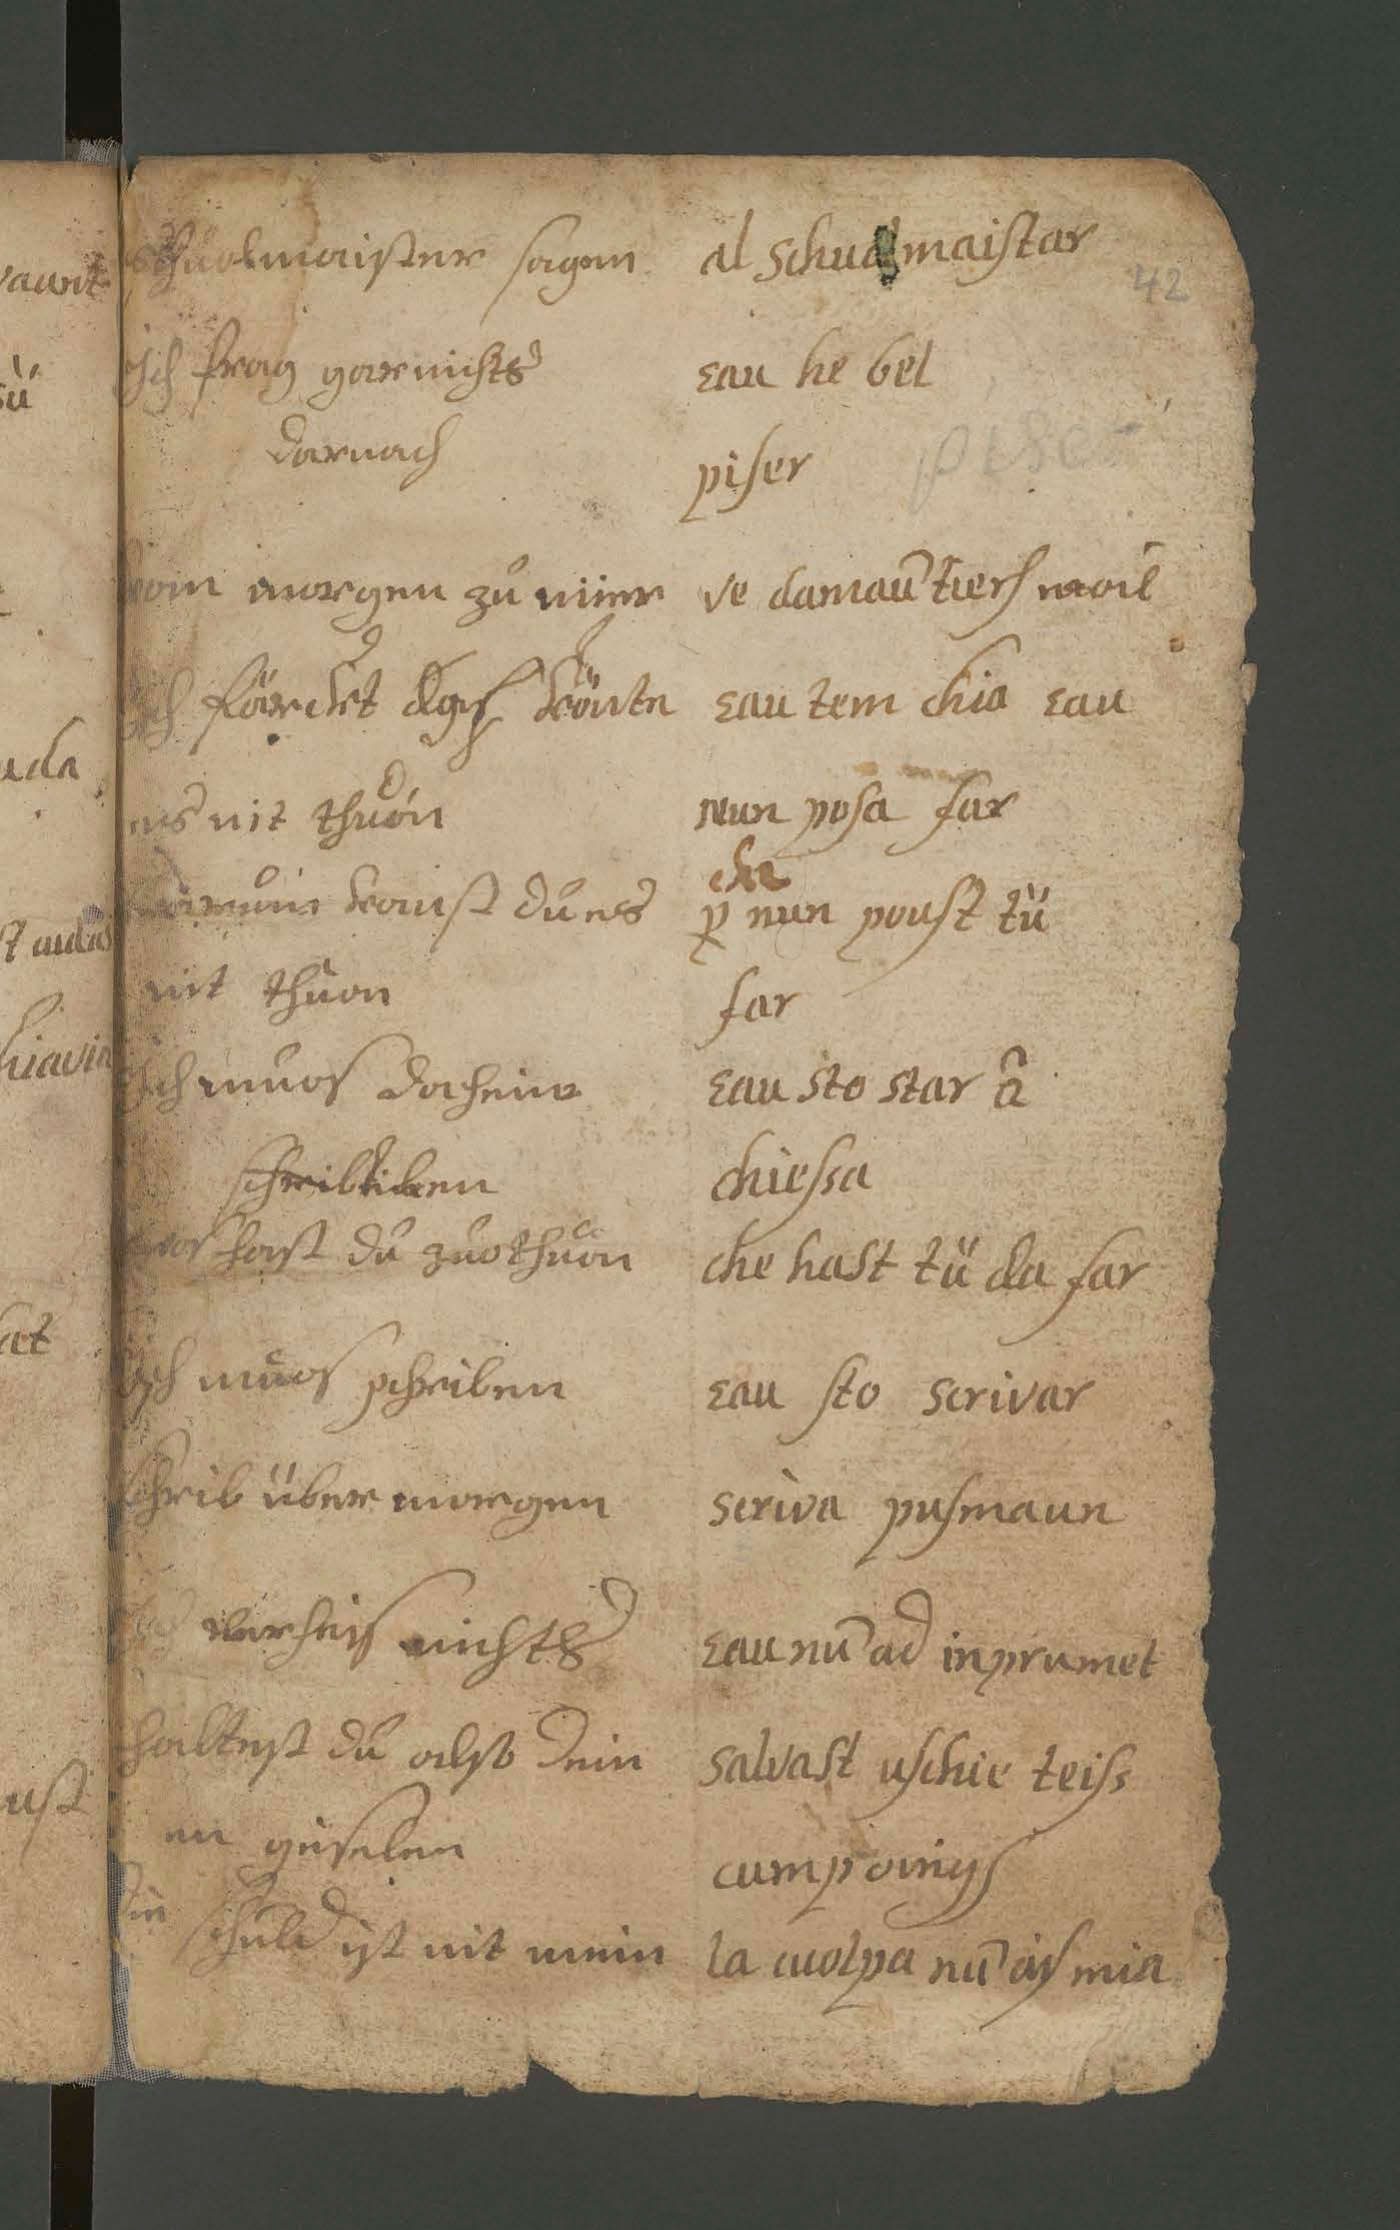 schuolmaister sagen al schualmaistar
42
ich frag gar nichts eau he bel
darnach piser piser
kom morgen zu mier ve damaũ tiers moi
ich förcht ich könte eau tem chia eau
es nit thuon nun posa far
che
warumb kanst du es p nun poust tü
nit thuon far
ich muos daheim eau sto star ã
bliben chiessa
was hast du zuo thuon che hast tü da far
ich muos schriben eau sto scrivar
schrib über morgen scriva pusmaun
ich verheis nichts eau nũ ad inprumet
haltest du also dein salvast uschie teiss
en gsellen cumpoings
die schuld ist nit mein la cuolpa nũ ais mia